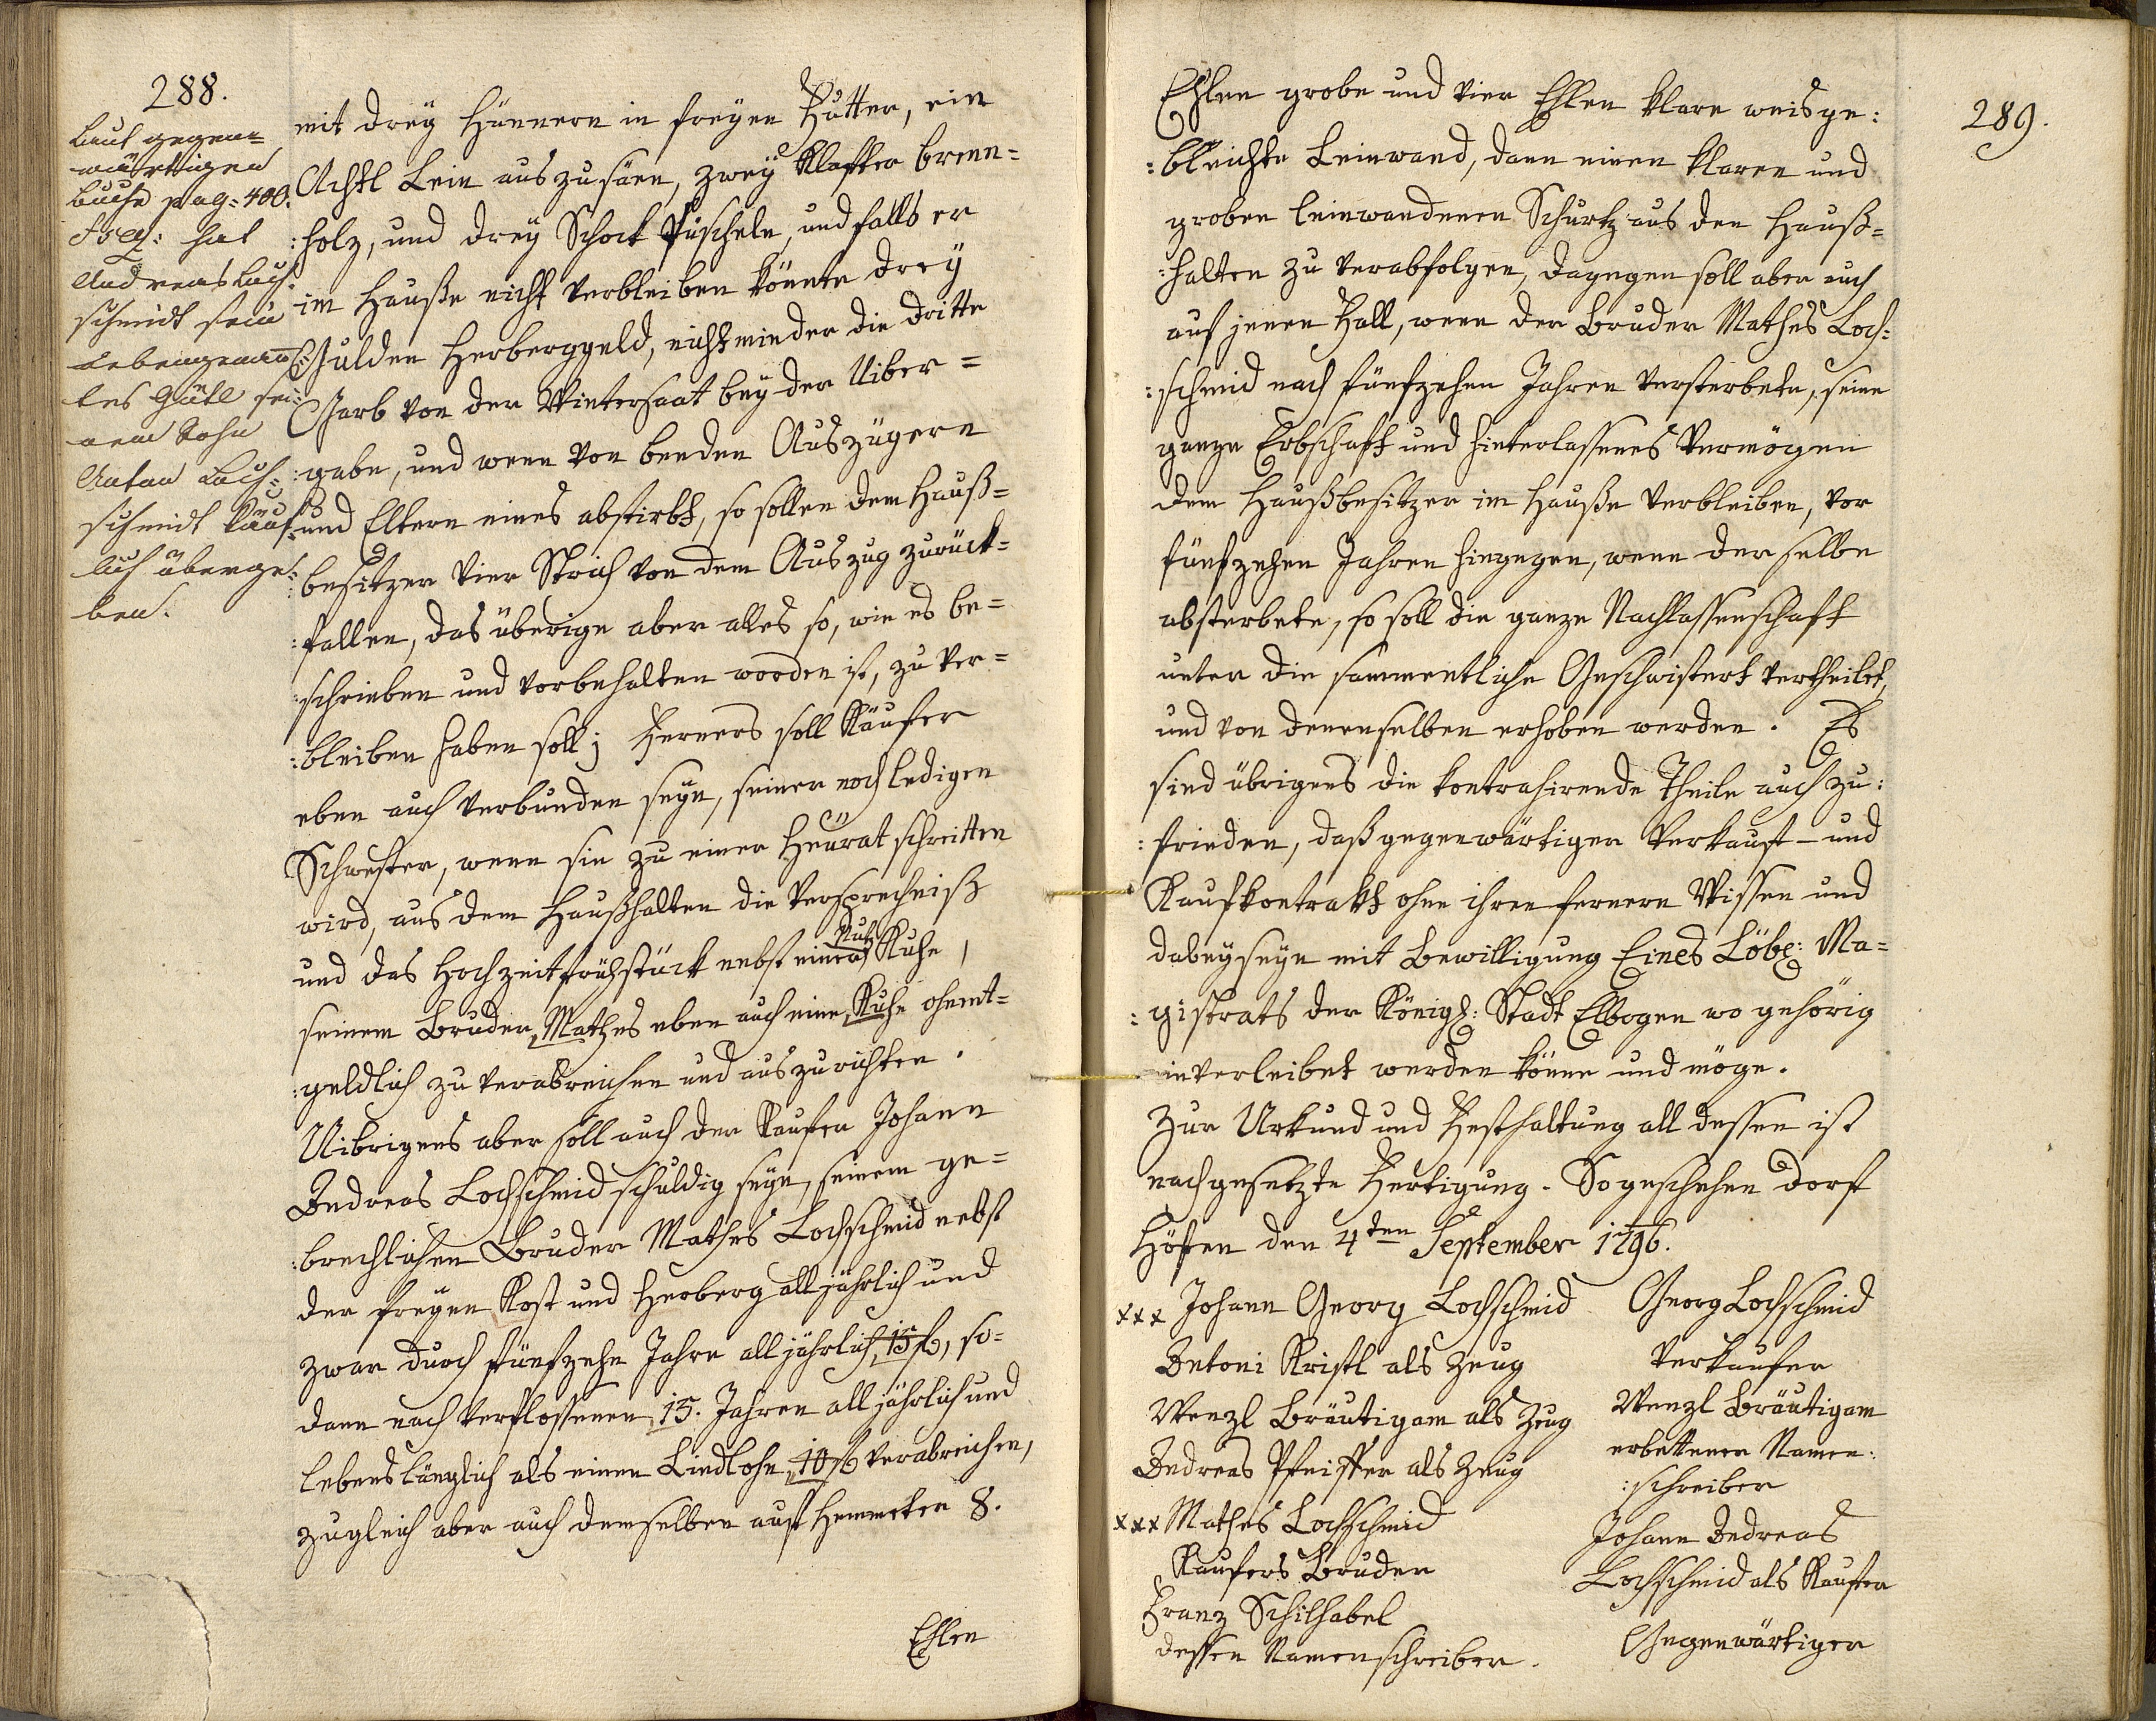 288.
Laut gegen=
wärttigen
Buche pag: 400.
et seq: hat
Andreas Loch:
schmidt sein
Lebengemau
tes Gütl sei:
nem Sohn
Anton Loch:
schmidt käuf:
lich überge:
ben.
mit drey Hünnern in freyen Futter, ein
Achtl Lein auszusäen, zwey Klafter brenn=
:holz, und drey Schock Püscheln, und falls er
im Hauße nicht verbleiben könnte drey
Gulden Herberggeld, nicht minder die dritte
Garb von der Wintersaat bey der Uiber=
:gabe, und wenn von beeden Auszügern
und Eltern eines abstirbt, so sollen dem Hauß=
:besitzer vier Strich von dem Auszug zurück=
:fallen, das überige aber alles so, wie es be=
:schrieben und vorbehalten worden ist, zu ver=
:bleiben haben soll; Ferners soll Käufer
eben auch verbunden seyn, seiner noch ledigen
Schwester, wenn sie zu einer Heürat schreitten
wird, aus dem Haußhalten die Versprechniß
und das Hochzeitfrühstück nebst einer Nutz Kuhe,
seinem Bruder Mathes eben auch eine Kuhe ohnent=
:geldlich zu verabreichen und auszurichten.
Uibrigens aber soll auch der Kaufer Johann
Andreas Lochschmid schuldig seyn, seinem ge=
:brechlichen Bruder Mathes Lochschmid nebst
der freyen Kost und Herberg alljährlich und
zwar durch fünfzehn Jahre alljährlich 15 f, so=
dann nach verflossenen 15. Jahren alljährlich und
lebenslänglich als einen Liedlohn 10 f verabreichen,
zugleich aber auch demselben auf Hemmeter 8.
Ehlen
289.
Ehlen grobe und vier Ehlen klare weisge:
:bleichte Leinwand, dann einen klaren und
groben leinwandenen Schurtz aus den Hauß=
:halten zu verabfolgen, dagegen soll aber auch
auf jenen Fall, wenn der Bruder Mathes Loch:
:schmid nach fünfzehen Jahren versterbete, seine
ganze Erbschaft und hinterlassenes Vermögen
dem Haußbesitzer im Hauße verbleiben, vor
fünfzehen Jahren hingegen, wenn derselbe
absterbete, so soll die ganze Nachlassenschaft
unter die sammentliche Geschwistert vertheilet,
und von denenselben erhoben werden. Es
sind übrigens die kontrahirende Theile auch zu:
:frieden, daß gegenwärtiger Verkauf- und
Kaufkontrakt ohne ihren fernern Wissen und
dabeyseyn mit Bewilligung Eines Löbl: Ma=
:gistrats der Königl: Stadt Elbogen wo gehörig
inverleibet werden könne und möge.
Zur Urkund und Festhaltung all dessen ist
nachgesetzte Fertigung. So geschehen Dorf
Höfen den 4ten September 1796.
xxx Johann Georg Lochschmid
Antoni Kristl als Zeug
Wenzl Bräutigam als Zeug
Andreas Pfeiffer als Zeug
xxx Mathes Lochschmid
Kaufers Bruder
Franz Schilhabel
dessen Namenschreiber.
Georg Lochschmid
Verkaufer
Wenzl Bräutigam
erbettener Namen:
:schreiber
Johann Andreas
Lochschmid als Kaufer
Gegenwärtiger